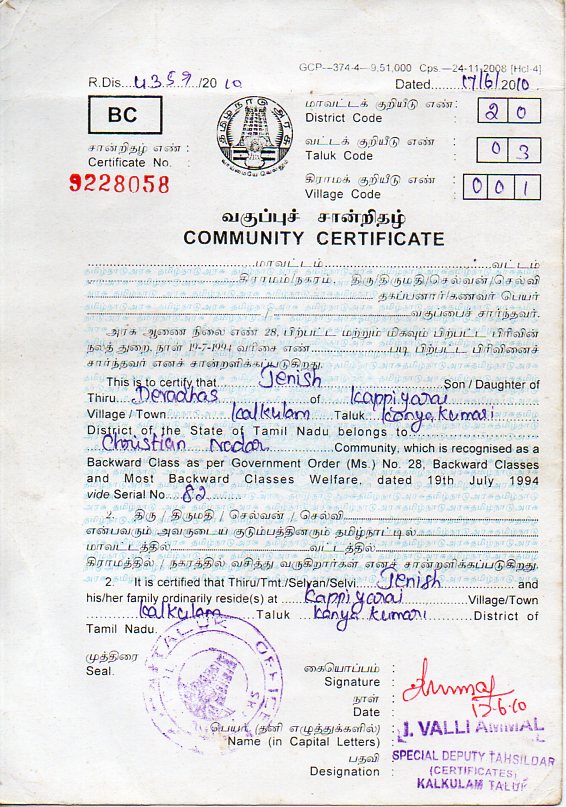 GCP—374-4—9,51,000 Cps.—24-11-2008 [Hcl-4]
R.Dis....4359..../2010 Dated....17/6/2010.
BC
தமிழ்நாடு அரசு
வாய்மையே வெல்லும்
மாவட்டக் குறியீடு எண் :
District Code 2 0
வட்டக் குறியீடு எண் :
Taluk Code 0 3
கிராமக் குறியீடு எண் :
Village Code 0 0 1
சான்றிதழ் எண் :
Certificate No. :
9228058
வகுப்புச் சான்றிதழ்
COMMUNITY CERTIFICATE
மாவட்டம் வட்டம்
கிராமம்/நகரம், திரு/திருமதி/செல்வன்/செல்வி
தகப்பனார்/கணவர் பெயர்
/ வகுப்பைச் சார்ந்தவர்.
அரசு ஆணை நிலை எண் 28, பிற்பட்ட மற்றும் மிகவும் பிற்பட்ட பிரிவின்
நலத் துறை, நாள் 19-7-1994 வரிசை எண் படி பிற்பட்ட பிரிவினைச்
சார்ந்தவர் எனச் சான்றளிக்கப்படுகிறது.
This is to certify that Jenish Son / Daughter of
Thiru Devadhas of Kappiyarai
Village / Town Kalkulam Taluk Kanyakumari
District of the State of Tamil Nadu belongs to
Christian Nadar Community, which is recognised as a
Backward Class as per Government Order (Ms.) No. 28, Backward Classes
and Most Backward Classes Welfare, dated 19th July 1994
vide Serial No. 82
2. திரு / திருமதி / செல்வன் / செல்வி
என்பவரும் அவருடைய குடும்பத்தினரும் தமிழ்நாட்டில்
மாவட்டத்தில் வட்டத்தில்
கிராமத்தில் / நகரத்தில் வசித்து வருகிறார்கள் எனச் சான்றளிக்கப்படுகிறது.
2. It is certified that Thiru/Tmt./Selvan/Selvi Jenish and
his/her family ordinarily reside(s) at Kappiyarai Village/Town
Kalkulam Taluk Kanyakumari District of
Tamil Nadu.
முத்திரை
Seal.
TALUK OFFICE
கையொப்பம் :
Signature
நாள் :
Date
17.6.10
பெயர் (தனி எழுத்துக்களில்) :
Name (in Capital Letters)
J. VALLI AMMAL
பதவி :
Designation
SPECIAL DEPUTY TAHSILDAR
(CERTIFICATES)
KALKULAM TALUK